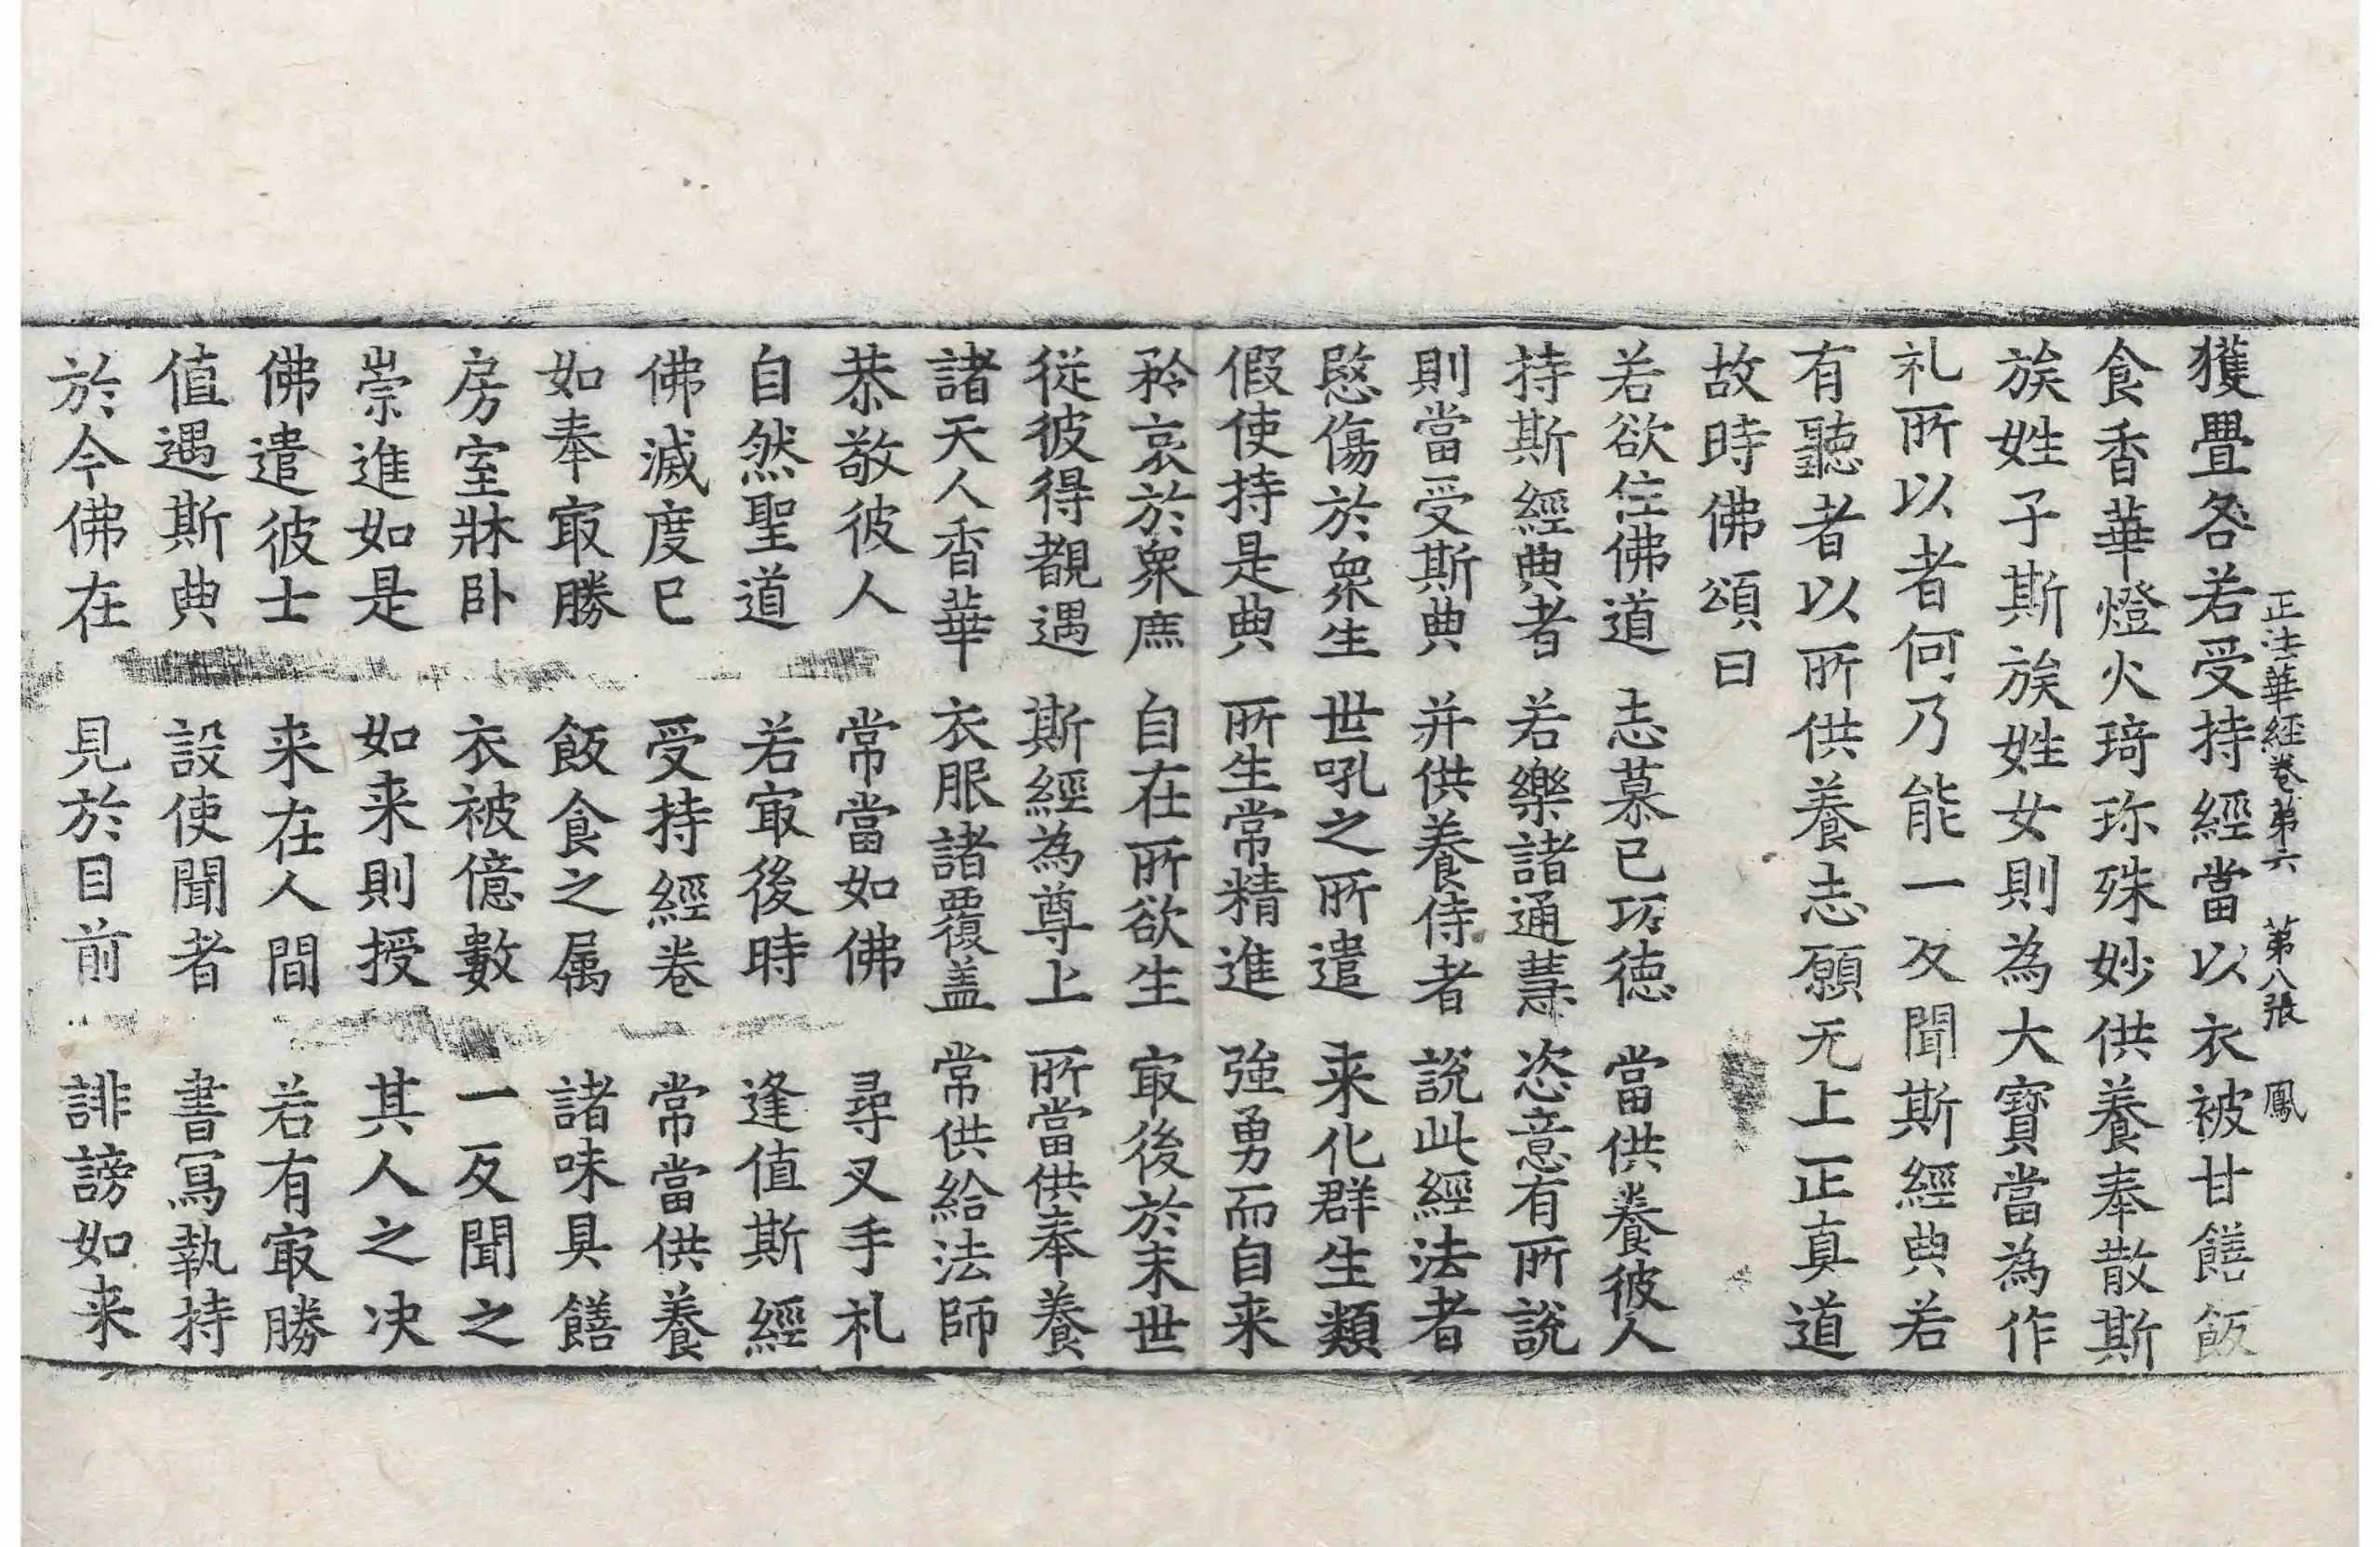 正法華經卷第六　第八張　鳳
獲疊各若受持經當以衣被甘饍飯
食香華燈火琦珎殊妙供養奉散斯
族姓子斯族姓女則為大寶當為作
礼所以者何乃能一反聞斯經典若
有聽者以所供養志願无上正真道
故時佛頌曰
若欲住佛道　志慕已功德　當供養彼人
持斯經典者　若樂諸通慧　恣意有所說
則當受斯典　并供養侍者　說此經法者
愍傷於衆生　世吼之所遣　来化群生類
假使持是典　所生常精進　強勇而自来
矜哀於衆庶　自在所欲生　㝡後於末世
從彼得覩遇　斯經為尊上　所當供奉養
諸天人香華　衣服諸覆盖　常供給法師
恭敬彼人　常當如佛　尋叉手礼
自然聖道　若㝡後時　逢值斯經
佛滅度已　受持經卷　常當供養
如奉㝡勝　飯食之属　諸味具饍
房室牀卧　衣被億數　一反聞之
崇進如是　如来則授　其人之决
佛遣彼士　来在人間　若有㝡勝
值遇斯典　設使聞者　書冩執持
於今佛在　見於目前　誹謗如来